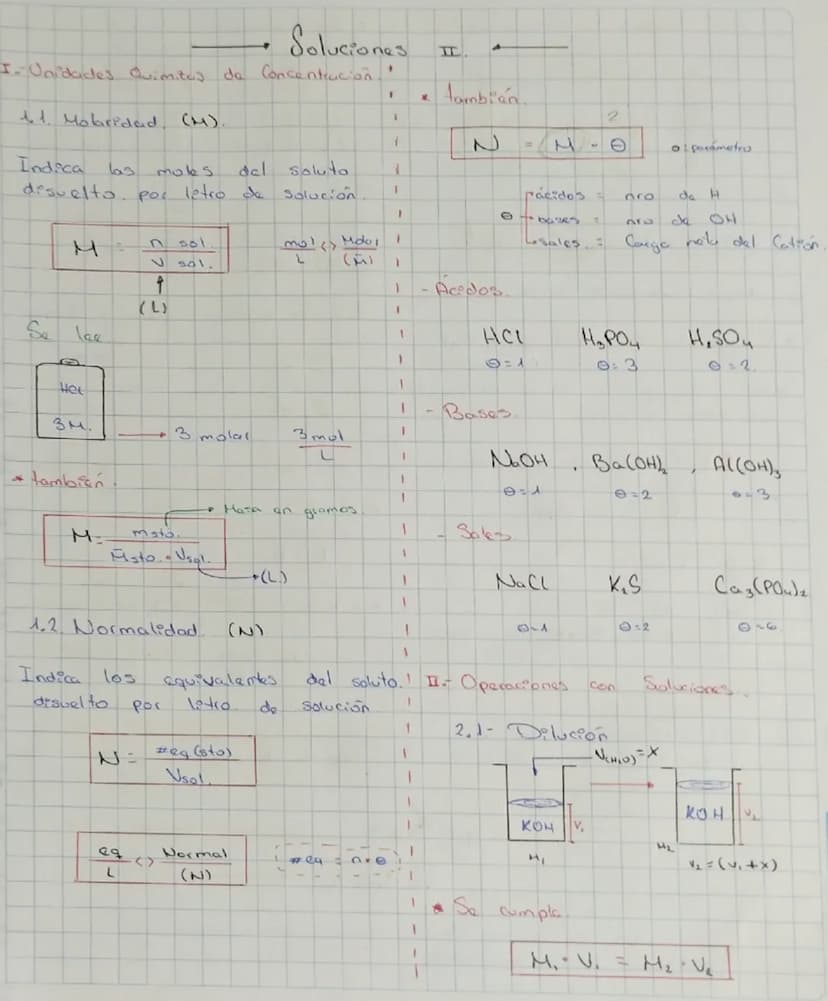 Soluciones II.
I.- Unidades Quimicas de Concentración.
1.1. Molaridad. (M).
Indica las moles del soluto
disuelto por letro de solución.
M = n sol. / V sol.
mol / L <> Molar / (M)
(L)
Se lee
HCl
3M.
3 molar 3 mol / L
* también.
Masa en gramos.
M = msto. / M̄sto · Vsol.
(L)
1.2. Normalidad (N)
Indica los equivalentes del soluto
disuelto por letro de solución
N = #eq(sto) / Vsol.
eq / L <> Normal / (N)
#eq = n·Θ
* también.
2
N = M · Θ
Θ: parámetro
Θ
ácidos = nro de H
bases = nro de OH
sales = Carga neta del Catión.
- Ácidos.
HCl H₃PO₄ H₂SO₄
Θ=1 Θ=3 Θ=2
- Bases.
NaOH , Ba(OH)₂ , Al(OH)₃
Θ=1 Θ=2 Θ=3
- Sales
NaCl K₂S Ca₃(PO₄)₂
Θ=1 Θ=2 Θ=6
II.- Operaciones con Soluciones.
2.1- Dilución
V(H₂O) = X
KOH V₁
M₁
KOH V₂
M₂
V₂ = (V₁ + X)
* Se cumple.
M₁ · V₁ = M₂ · V₂